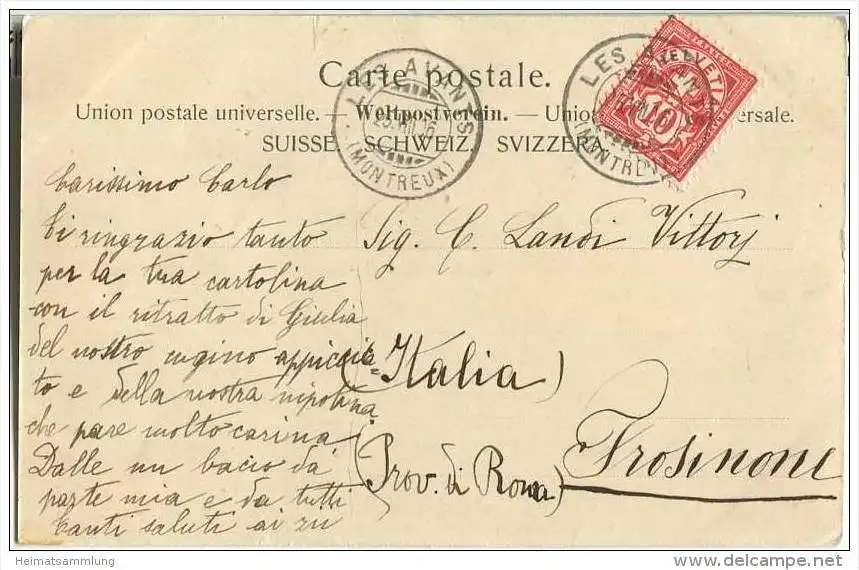 Carte postale.
Union postale universelle. — Weltpostverein. — Unio ersale.
SUISSE. SCHWEIZ. SVIZZERA.
LES AVANTS
(MONTREUX)
LES
(MONTREUX)
HELVETIA
10
Carissimo Carlo
Ti ringrazio tanto
per la tua cartolina
con il ritratto di Giulia
del nostro cugino appiccica=
to e della nostra nipotina
che pare molto carina
Dalle un bacio da
parte mia e da tutti
Tanti saluti ai zii
Sig. C. Landi Vittorj
(Italia)
Frosinone
(Prov. di Roma)
Heimatsammlung
www.delcampe.net